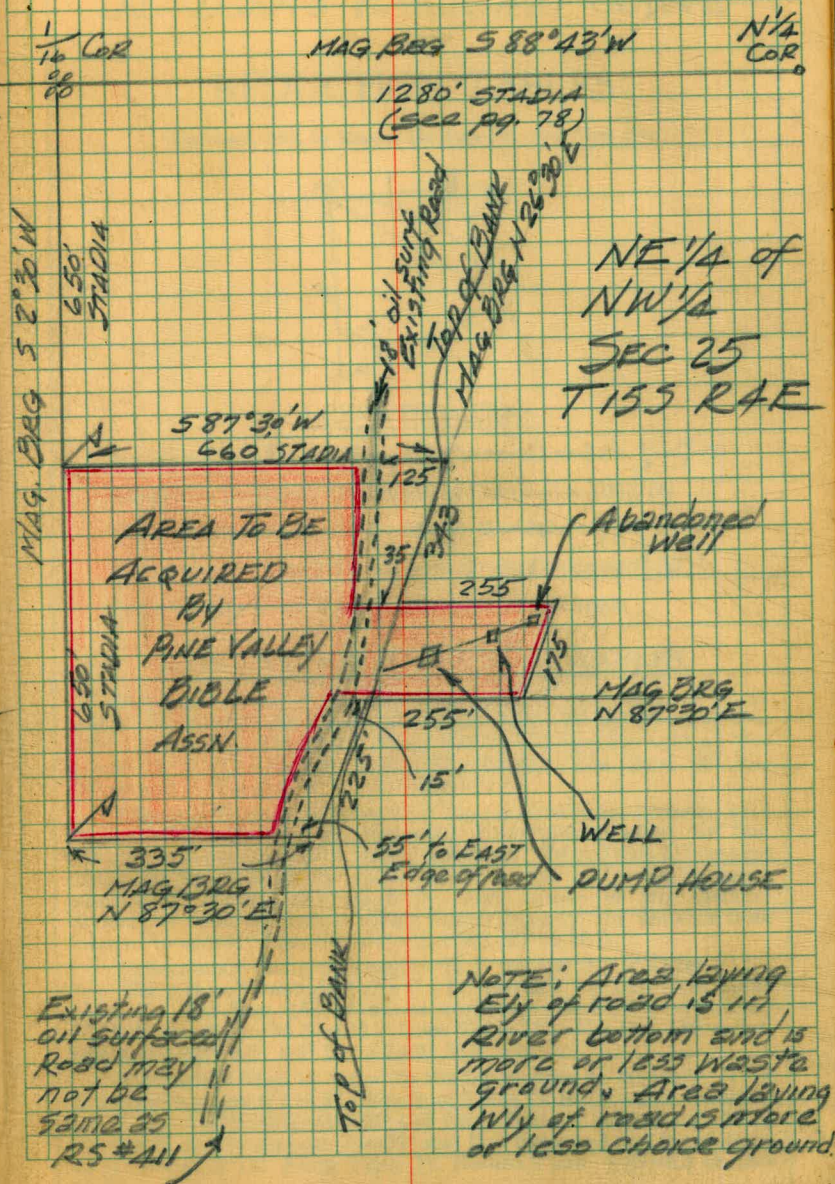 1/16 COR
MAG BRG S 88°43'W
N 1/4
COR.
1280' STADIA
(see pg. 78)
MAG. BRG S 2°30'W
650'
STADIA
18' oil surf
Existing Road
Top of BANK
MAG BRG N 26°30'E
NE 1/4 of
NW 1/4
SEC 25
T15S R4E
S 87°30'W
660 STADIA
125'
343
35
AREA TO BE
ACQUIRED
BY
PINE VALLEY
BIBLE
ASSN.
650'
STADIA
Abandoned
Well
255
175
255'
MAG BRG
N 87°30'E
225'
15'
WELL
PUMP HOUSE
55' to EAST
Edge of road
335'
MAG BRG
N 87°30'E
Top of BANK
Existing 18'
oil surfaced
Road may
not be
same as
RS #411
NOTE: Area laying
Ely of road is in
River bottom and is
more or less waste
ground. Area laying
Wly of road is more
or less choice ground.